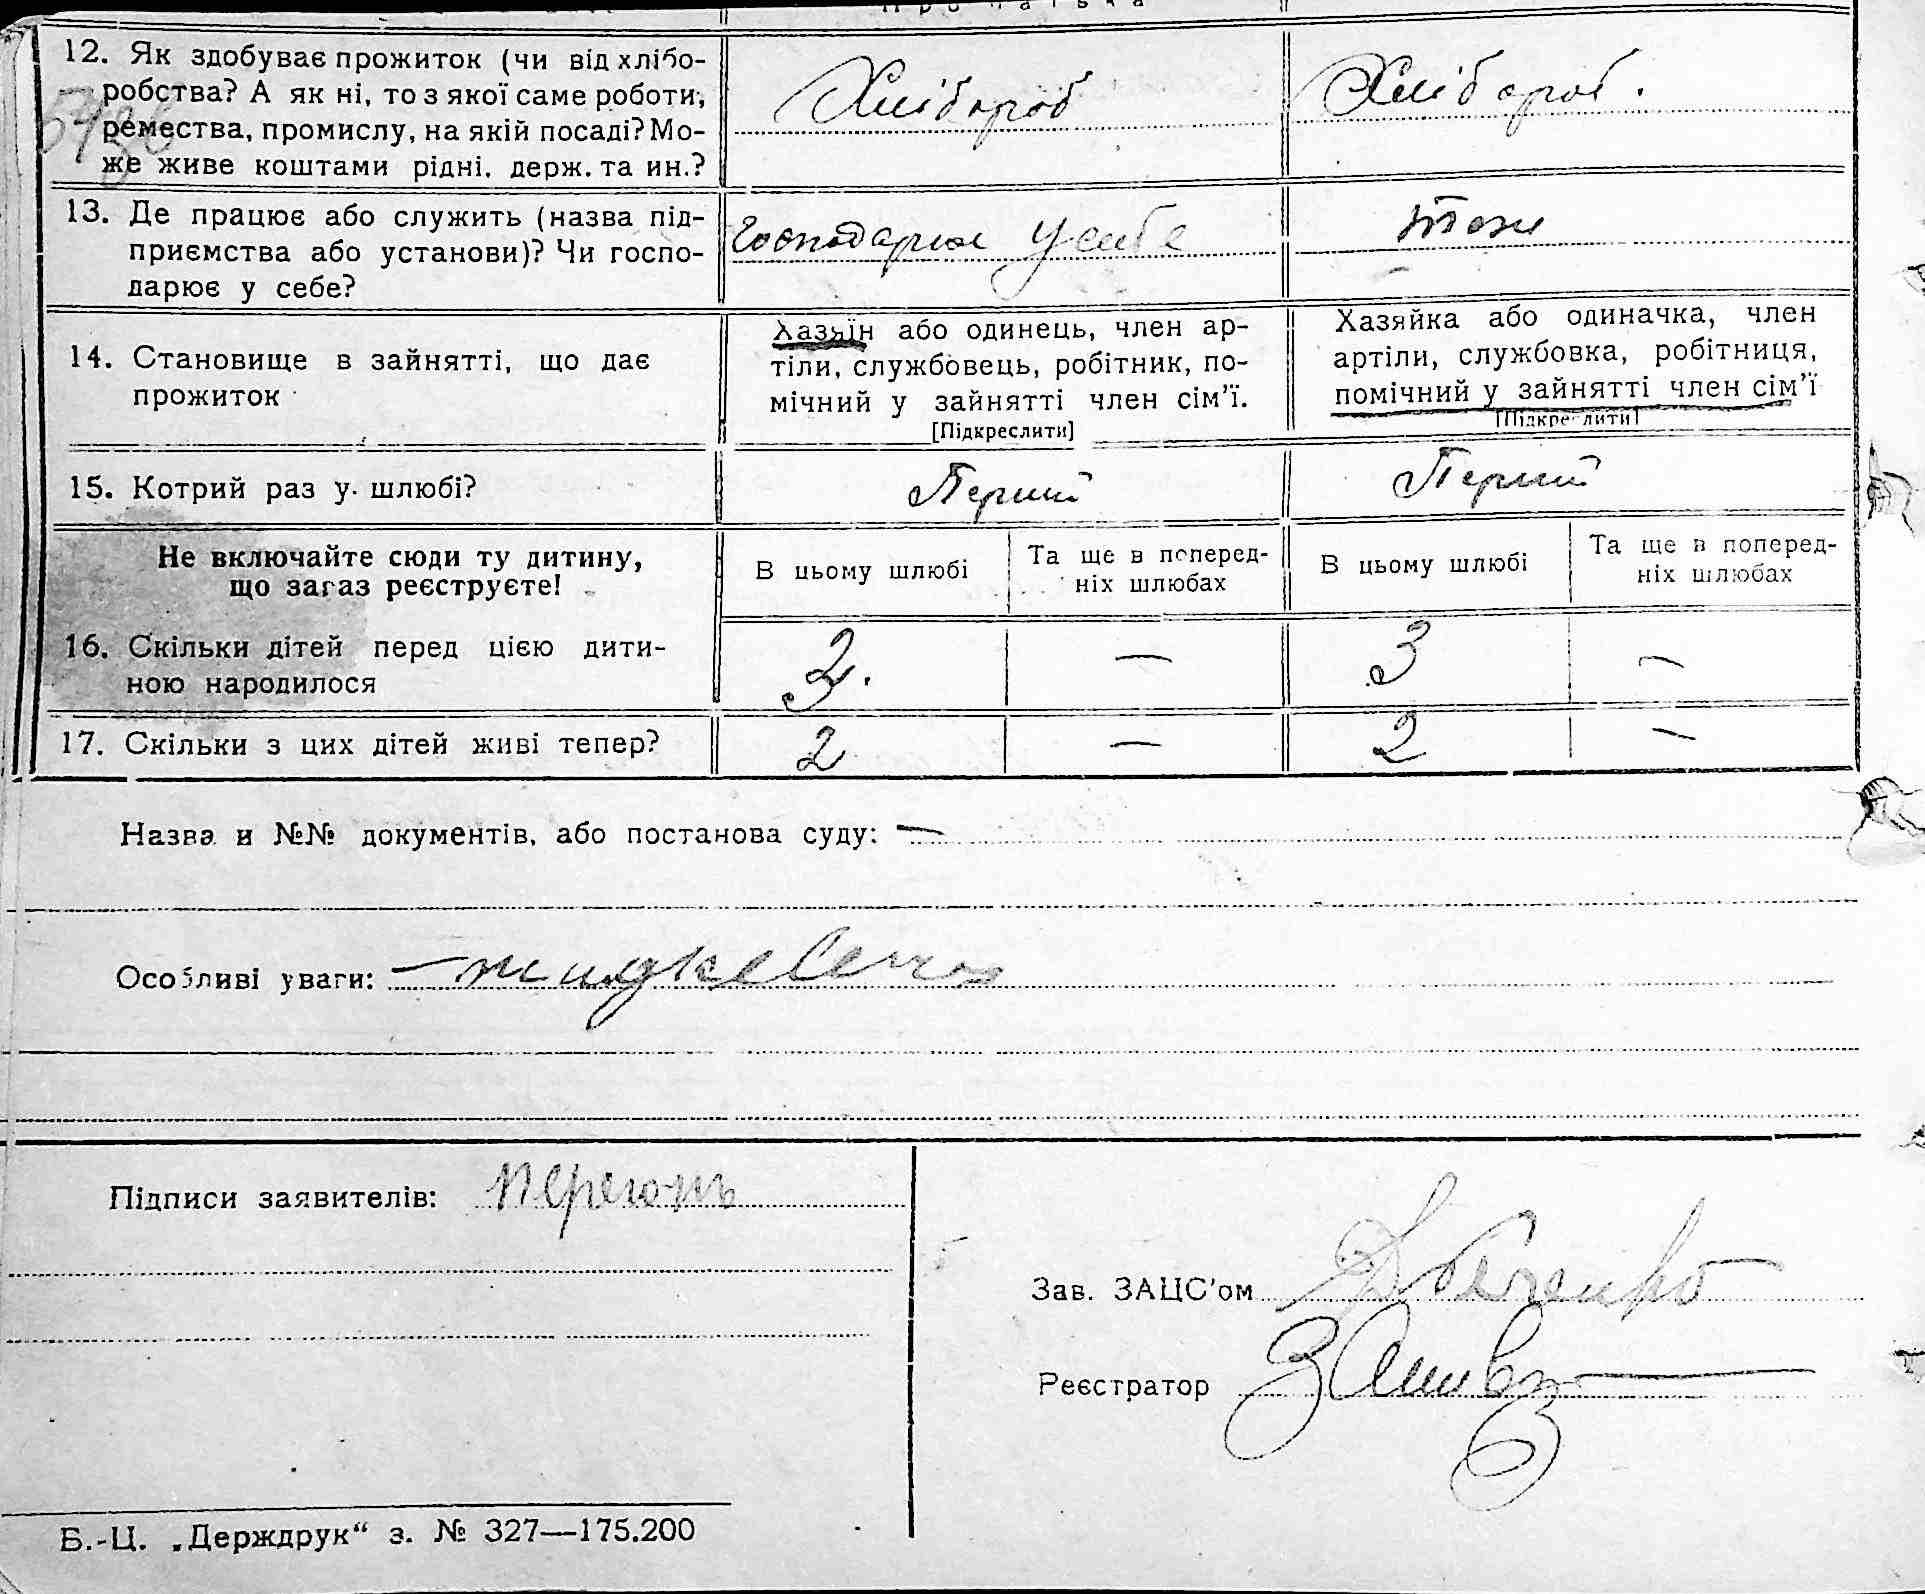 12. Як здобуває прожиток (чи від хлібо-
робства? А як ні, то з якої саме роботи,
ремества, промислу, на якій посаді? Мо-
же живе коштами рідні, держ. та ин.?
Хлібороб
Хлібороб.
13. Де працює або служить (назва під-
приємства або установи)? Чи госпо-
дарює у себе?
Господарює у себе
тож
14. Становище в зайнятті, що дає
прожиток
Хазяїн або одинець, член ар-
тіли, службовець, робітник, по-
мічний у зайнятті член сім'ї.
[Підкреслити]
Хазяйка або одиначка, член
артіли, службовка, робітниця,
помічний у зайнятті член сім'ї
[Підкреслити]
15. Котрий раз у шлюбі?
Перший
Перший
Не включайте сюди ту дитину,
що зараз реєструєте!
В цьому шлюбі
Та ще в поперед-
ніх шлюбах
В цьому шлюбі
Та ще в поперед-
ніх шлюбах
16. Скільки дітей перед цією дити-
ною народилося
3. — 3 —
17. Скільки з цих дітей живі тепер?
2 — 2 —
Назва и №№ документів, або постанова суду: —
Особливі уваги: —
Підписи заявителів:
Зав. ЗАЦС'ом
Реєстратор
Б.-Ц. „Держдрук“ з. № 327—175.200